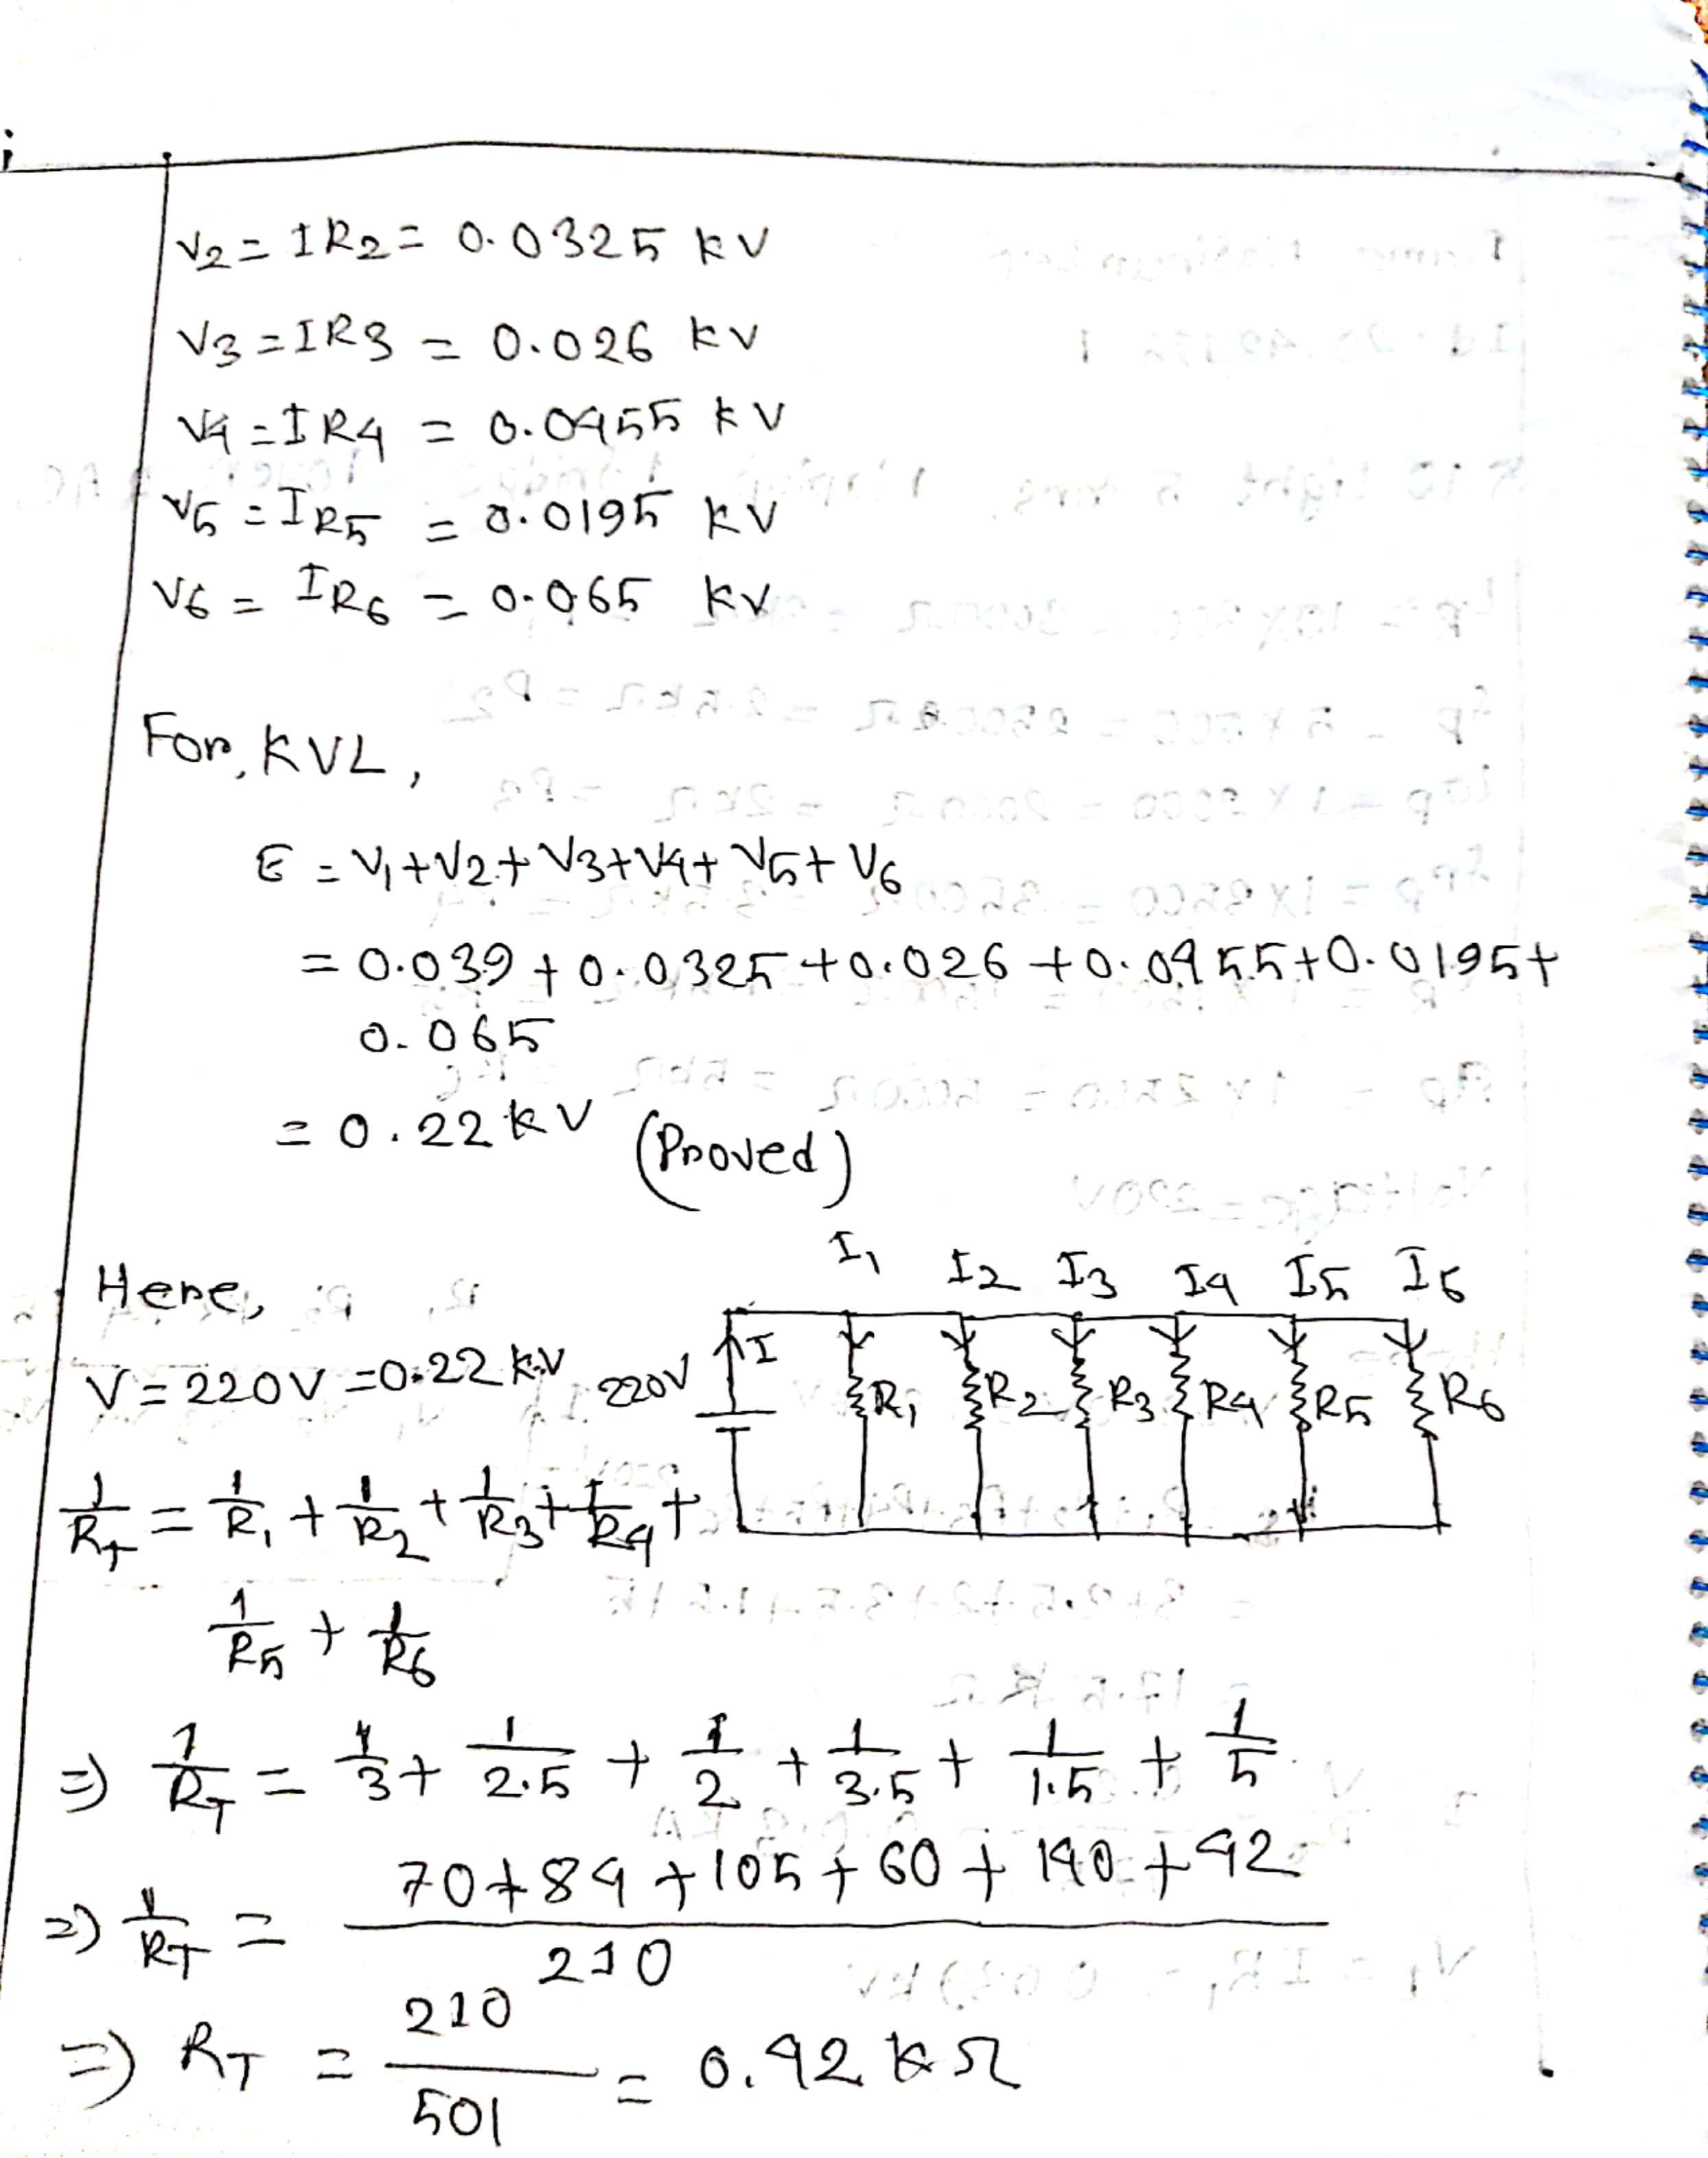 V2 = IR2 = 0.0325 kV
V3 = IR3 = 0.026 kV
V4 = IR4 = 0.0455 kV
V5 = IR5 = 0.0195 kV
V6 = IR6 = 0.065 kV
For, KVL,
E = V1 + V2 + V3 + V4 + V5 + V6
= 0.039 + 0.0325 + 0.026 + 0.0455 + 0.0195 +
0.065
= 0.22 kV (Proved)
I1 I2 I3 I4 I5 I6
Here,
V = 220V = 0.22 kV
220V I R1 R2 R3 R4 R5 R6
1/RT = 1/R1 + 1/R2 + 1/R3 + 1/R4 +
1/R5 + 1/R6
⇒) 1/RT = 1/3 + 1/2.5 + 1/2 + 1/3.5 + 1/1.5 + 1/5
⇒) 1/RT = 70 + 84 + 105 + 60 + 140 + 42 / 210
⇒) RT = 210 / 501 = 0.42 kΩ